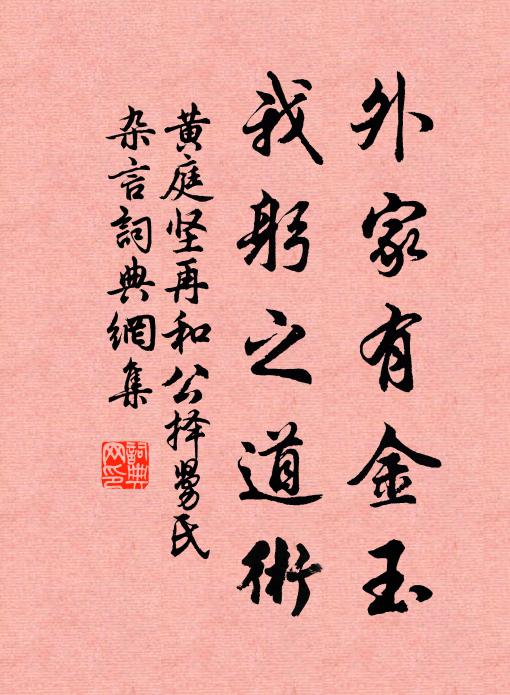 外家有金玉
我躬之道術
黄庭坚再和公择舅氏
杂言詞典網集
詞典网印